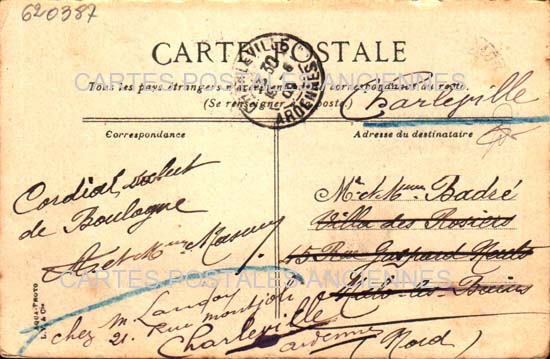 620387
CARTE POSTALE
CHARLEVILLE
ARDENNES
CARTES POSTALES ANCIENNES
Tous les pays étrangers n'acceptent pas la correspondance au recto
(Se renseigner à la poste.)
Charleville
Correspondance
Adresse du destinataire
Cordial salut
de Boulogne
Mr et Mme Badré
Villa des Rosiers
15 Rue Gaspard
Malo-les-Bains
(Nord)
CARTES POSTALES ANCIENNES
AQUA-PHOTO
chez M. Landoy
21. Rue montjoli
Charleville
ardennes